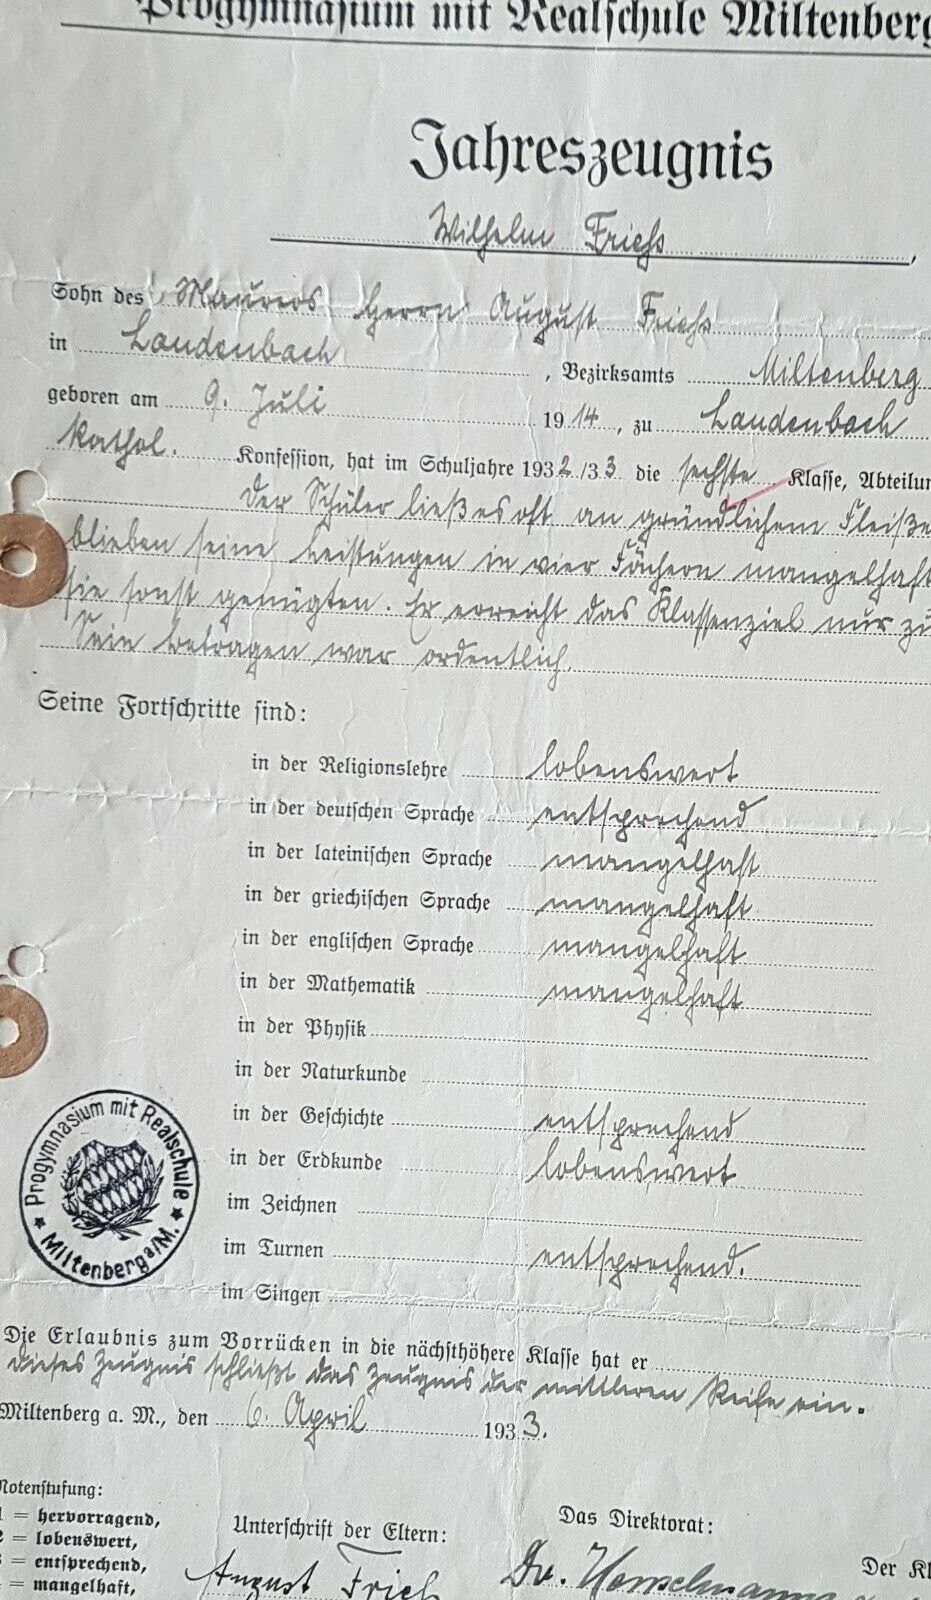 Progymnasium mit Realschule Miltenberg
Jahreszeugnis
Wilhelm Frieß
Sohn des Maurers Herrn August Frieß
in Laudenbach, Bezirksamts Miltenberg
geboren am 9. Juli 1914, zu Laudenbach
kathol. Konfession, hat im Schuljahre 1932/33 die sechste Klasse, Abteilun
Der Schüler ließ es oft an gründlichem Fleiße
blieben seine Leistungen in vier Fächern mangelhaft
sie sonst genügten. Er erreicht das Klassenziel nur zu
Sein Betragen war ordentlich.
Seine Fortschritte sind:
in der Religionslehre lobenswert
in der deutschen Sprache entsprechend
in der lateinischen Sprache mangelhaft
in der griechischen Sprache mangelhaft
in der englischen Sprache mangelhaft
in der Mathematik mangelhaft
in der Physik
in der Naturkunde
in der Geschichte entsprechend
in der Erdkunde lobenswert
im Zeichnen
im Turnen entsprechend.
im Singen
Progymnasium mit Realschule
Miltenberg a/M.
Die Erlaubnis zum Vorrücken in die nächsthöhere Klasse hat er
dieses Zeugnis schließt das Zeugnis der mittleren Reife ein.
Miltenberg a. M., den 6. April 1933.
Notenstufung:
1 = hervorragend,
2 = lobenswert,
3 = entsprechend,
4 = mangelhaft,
Unterschrift der Eltern:
August Frieß
Das Direktorat:
Dr.
Der Kl